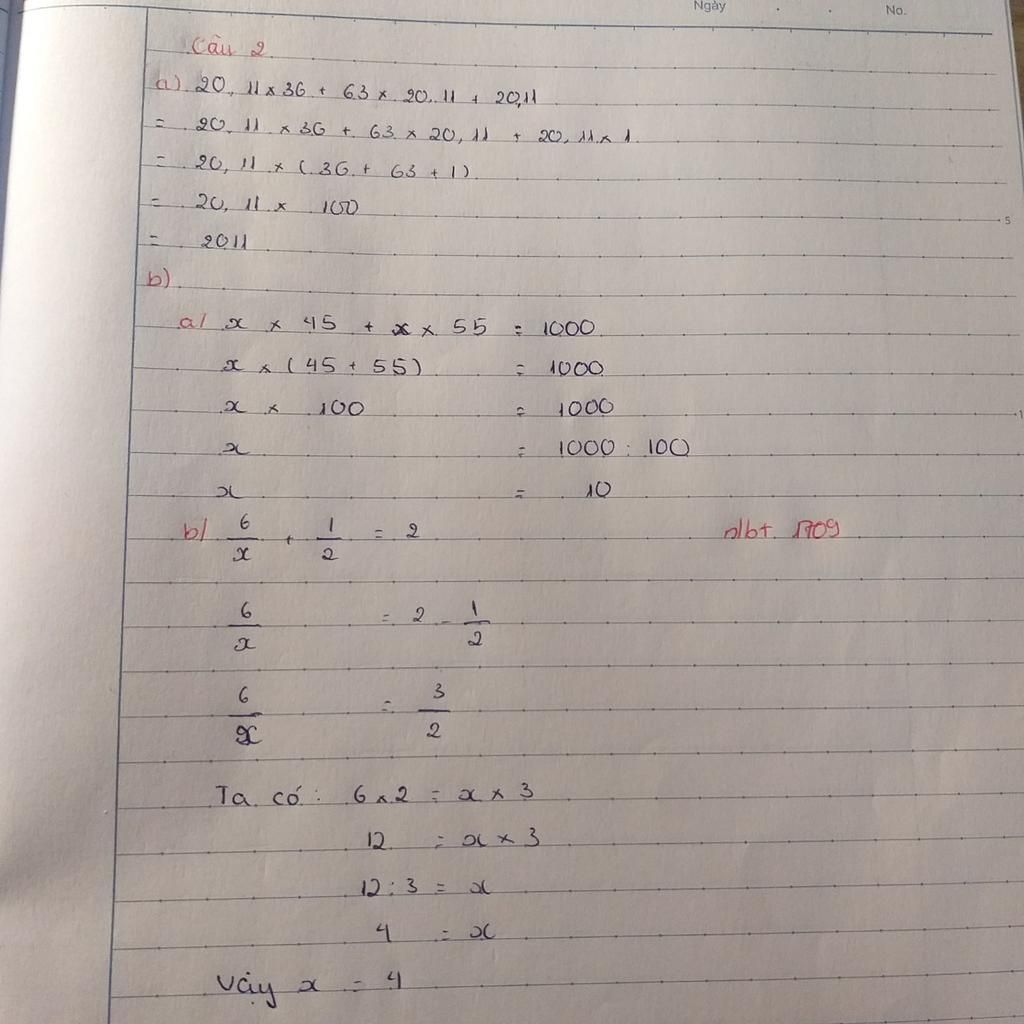 Ngày . . No.
Câu 2
a) 20,11 × 36 + 63 × 20,11 + 20,11
= 20,11 × 36 + 63 × 20,11 + 20,11 × 1
= 20,11 × (36 + 63 + 1)
= 20,11 × 100
= 2011
b)
a/ x × 45 + x × 55 = 1000
x × (45 + 55) = 1000
x × 100 = 1000
x = 1000 : 100
x = 10
b/ 6/x + 1/2 = 2
nlbt 1709
6/x = 2 - 1/2
6/x = 3/2
Ta có: 6 × 2 = x × 3
12 = x × 3
12 : 3 = x
4 = x
Vậy x = 4
5
1